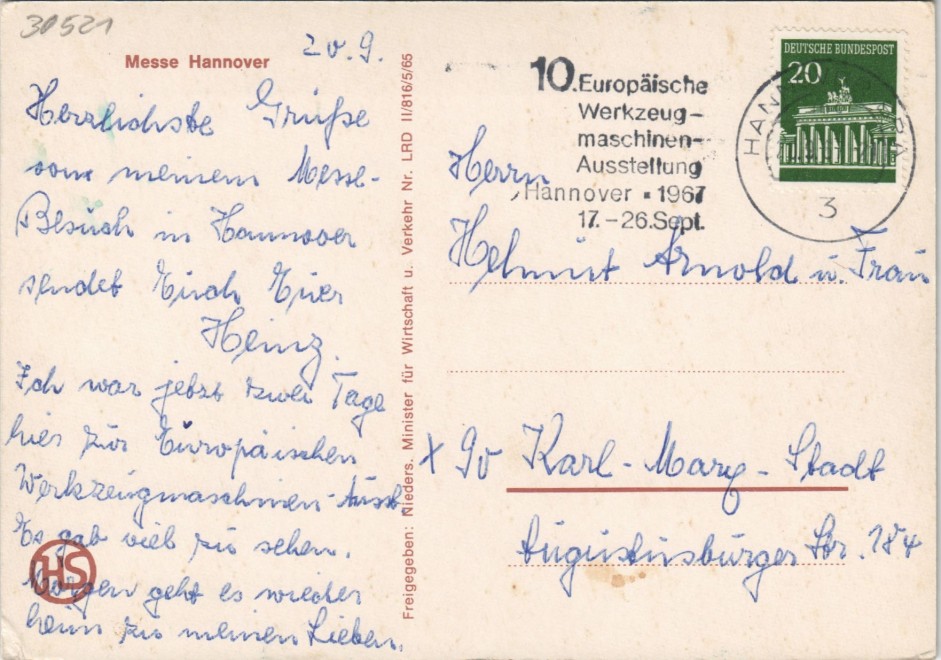 30521
Messe Hannover
20. 9.
Herzlichste Grüße
von meinem Messe-
Besuch in Hannover
sendet Euch Euer
Heinz.
Ich war jetzt zwei Tage
hier zur Europäischen
Werkzeugmaschinen-Ausst.
Es gab viel zu sehen.
Morgen geht es wieder
heim zu meinen Lieben.
HS
Freigegeben: Nieders. Minister für Wirtschaft u. Verkehr Nr. LRD II/816/5/65
10. Europäische
Werkzeug-
maschinen-
Ausstellung
Hannover • 1967
17.–26. Sept.
DEUTSCHE BUNDESPOST
20
3
Herrn
Helmut Arnold u. Frau
X 90 Karl-Marx-Stadt
Augustusburger Str. 184